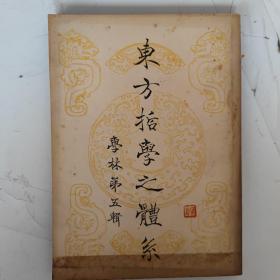 東方哲學之體系
學林第五輯